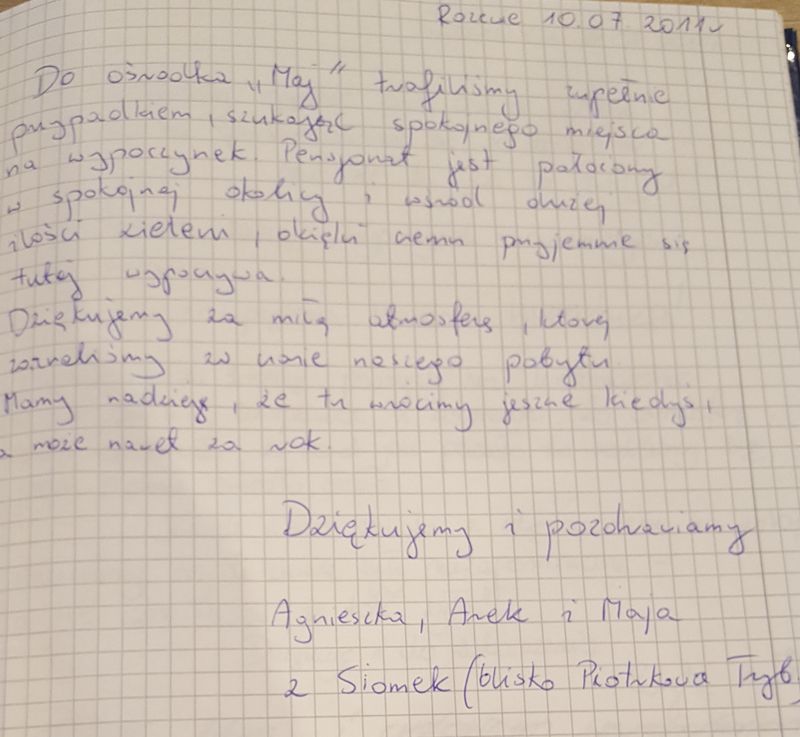 10.07 2011r
Do ośrodka „Maj" trafiliśmy zupełnie
przypadkiem, szukając spokojnego miejsca
na wypoczynek. Pensjonat jest położony
w spokojnej okolicy i wśród dużej
ilości zieleni, dzięki czemu przyjemnie się
tutaj wypoczywa.
Dziękujemy za miłą atmosferę, której
zaznaliśmy w czasie naszego pobytu.
Mamy nadzieję, że tu wrócimy jeszcze kiedyś,
a może nawet za rok.
Dziękujemy i pozdrawiamy
Agnieszka, Arek i Maja
z Siomek (blisko Piotrkowa Tryb